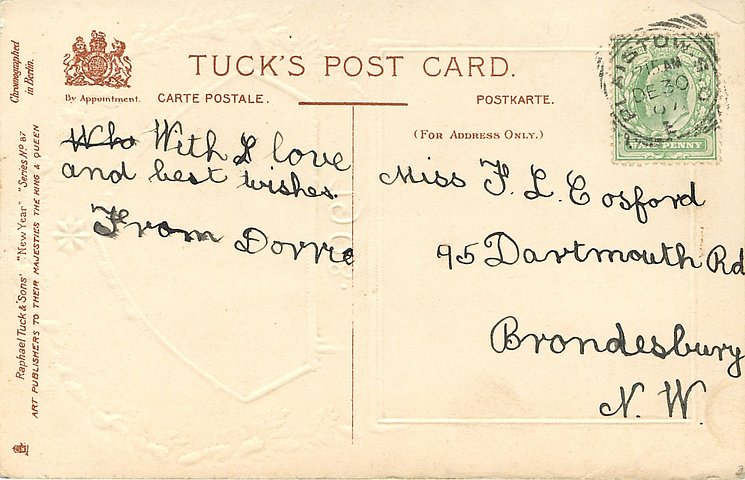 TUCK'S POST CARD.
By Appointment.
CARTE POSTALE.
POSTKARTE.
(For Address Only.)
Chromographed
in Berlin.
Raphael Tuck & Sons' "New Year" "Series No 87
ART PUBLISHERS TO THEIR MAJESTIES THE KING & QUEEN
Who With L love
and best wishes.
From Dorrie
Miss F. L. Cosford
95 Dartmouth Rd
Brondesbury
N. W.
PLAISTOW S.O
AM
DE 30
07
HALFPENNY
1908